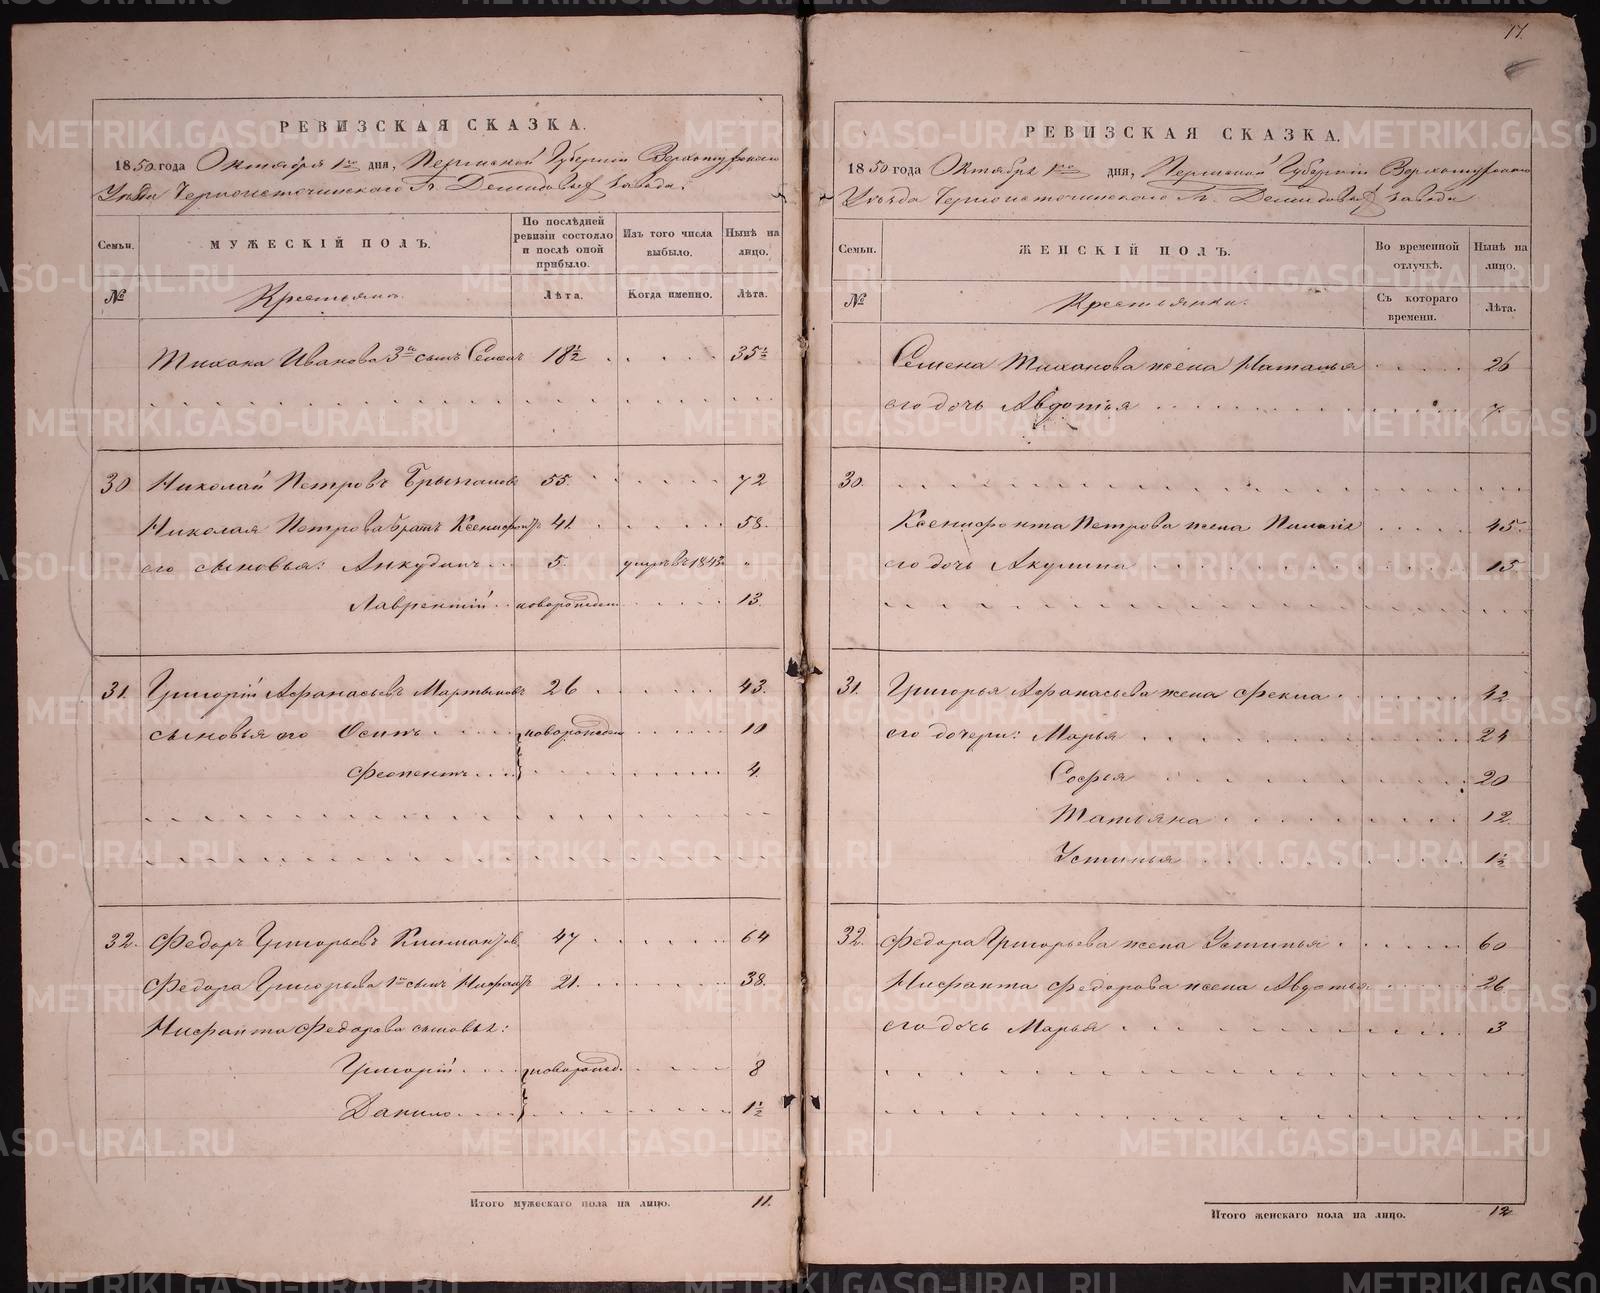 17.
РЕВИЗСКАЯ СКАЗКА.
1850 года Октября 1го дня, Пермской Губерніи Верхотурскаго
Уѣзда Черноисточинскаго Гг. Демидовыхъ завода.
Семьи.
МУЖЕСКІЙ ПОЛЪ.
По послѣдней ревизіи состояло и послѣ оной прибыло.
Изъ того числа выбыло.
Нынѣ на лицо.
№
Крестьяне.
Лѣта.
Когда именно.
Лѣта.
Тихона Иванова 3й сынъ Семенъ 18½ 35½
30 Николай Петровъ 55. 72
Николая Петрова братъ Ксенофонтъ 41. 58.
его сыновья: Анкудинъ 5. умеръ въ 1843 "
Лаврентій новорожден 13.
31. Григорій Афанасьевъ Мартьяновъ 26 43.
сыновья его Осипъ новорожден 10
Феопентъ 4.
32. Федоръ Григорьевъ 47 64
Федора Григорьева 1й сынъ Нифантъ 21. 38.
Нифанта Федорова сыновья:
Григорій новорожд. 8
Данило 1½
Итого мужескаго пола на лицо. 11.
РЕВИЗСКАЯ СКАЗКА.
1850 года Октября 1го дня, Пермской Губерніи Верхотурскаго
Уѣзда Черноисточинскаго Гг. Демидовыхъ завода
Семьи.
ЖЕНСКІЙ ПОЛЪ.
Во временной отлучкѣ.
Нынѣ на лицо.
№
Крестьянки.
Съ котораго времени.
Лѣта.
Семена Тихонова жена Наталья 26
его дочь Авдотья 7.
30.
Ксенофонта Петрова жена 45.
его дочь Акулина 15.
31. Григорья Афанасьева жена Фекла 42
его дочери: Марья 24
Софья 20
Татьяна 12.
Устинья 1½
32. Федора Григорьева жена Устинья 60
Нифанта Федорова жена Авдотья 26
его дочь Марья 3
Итого женскаго пола на лицо. 12
METRIKI.GASO-URAL.RU